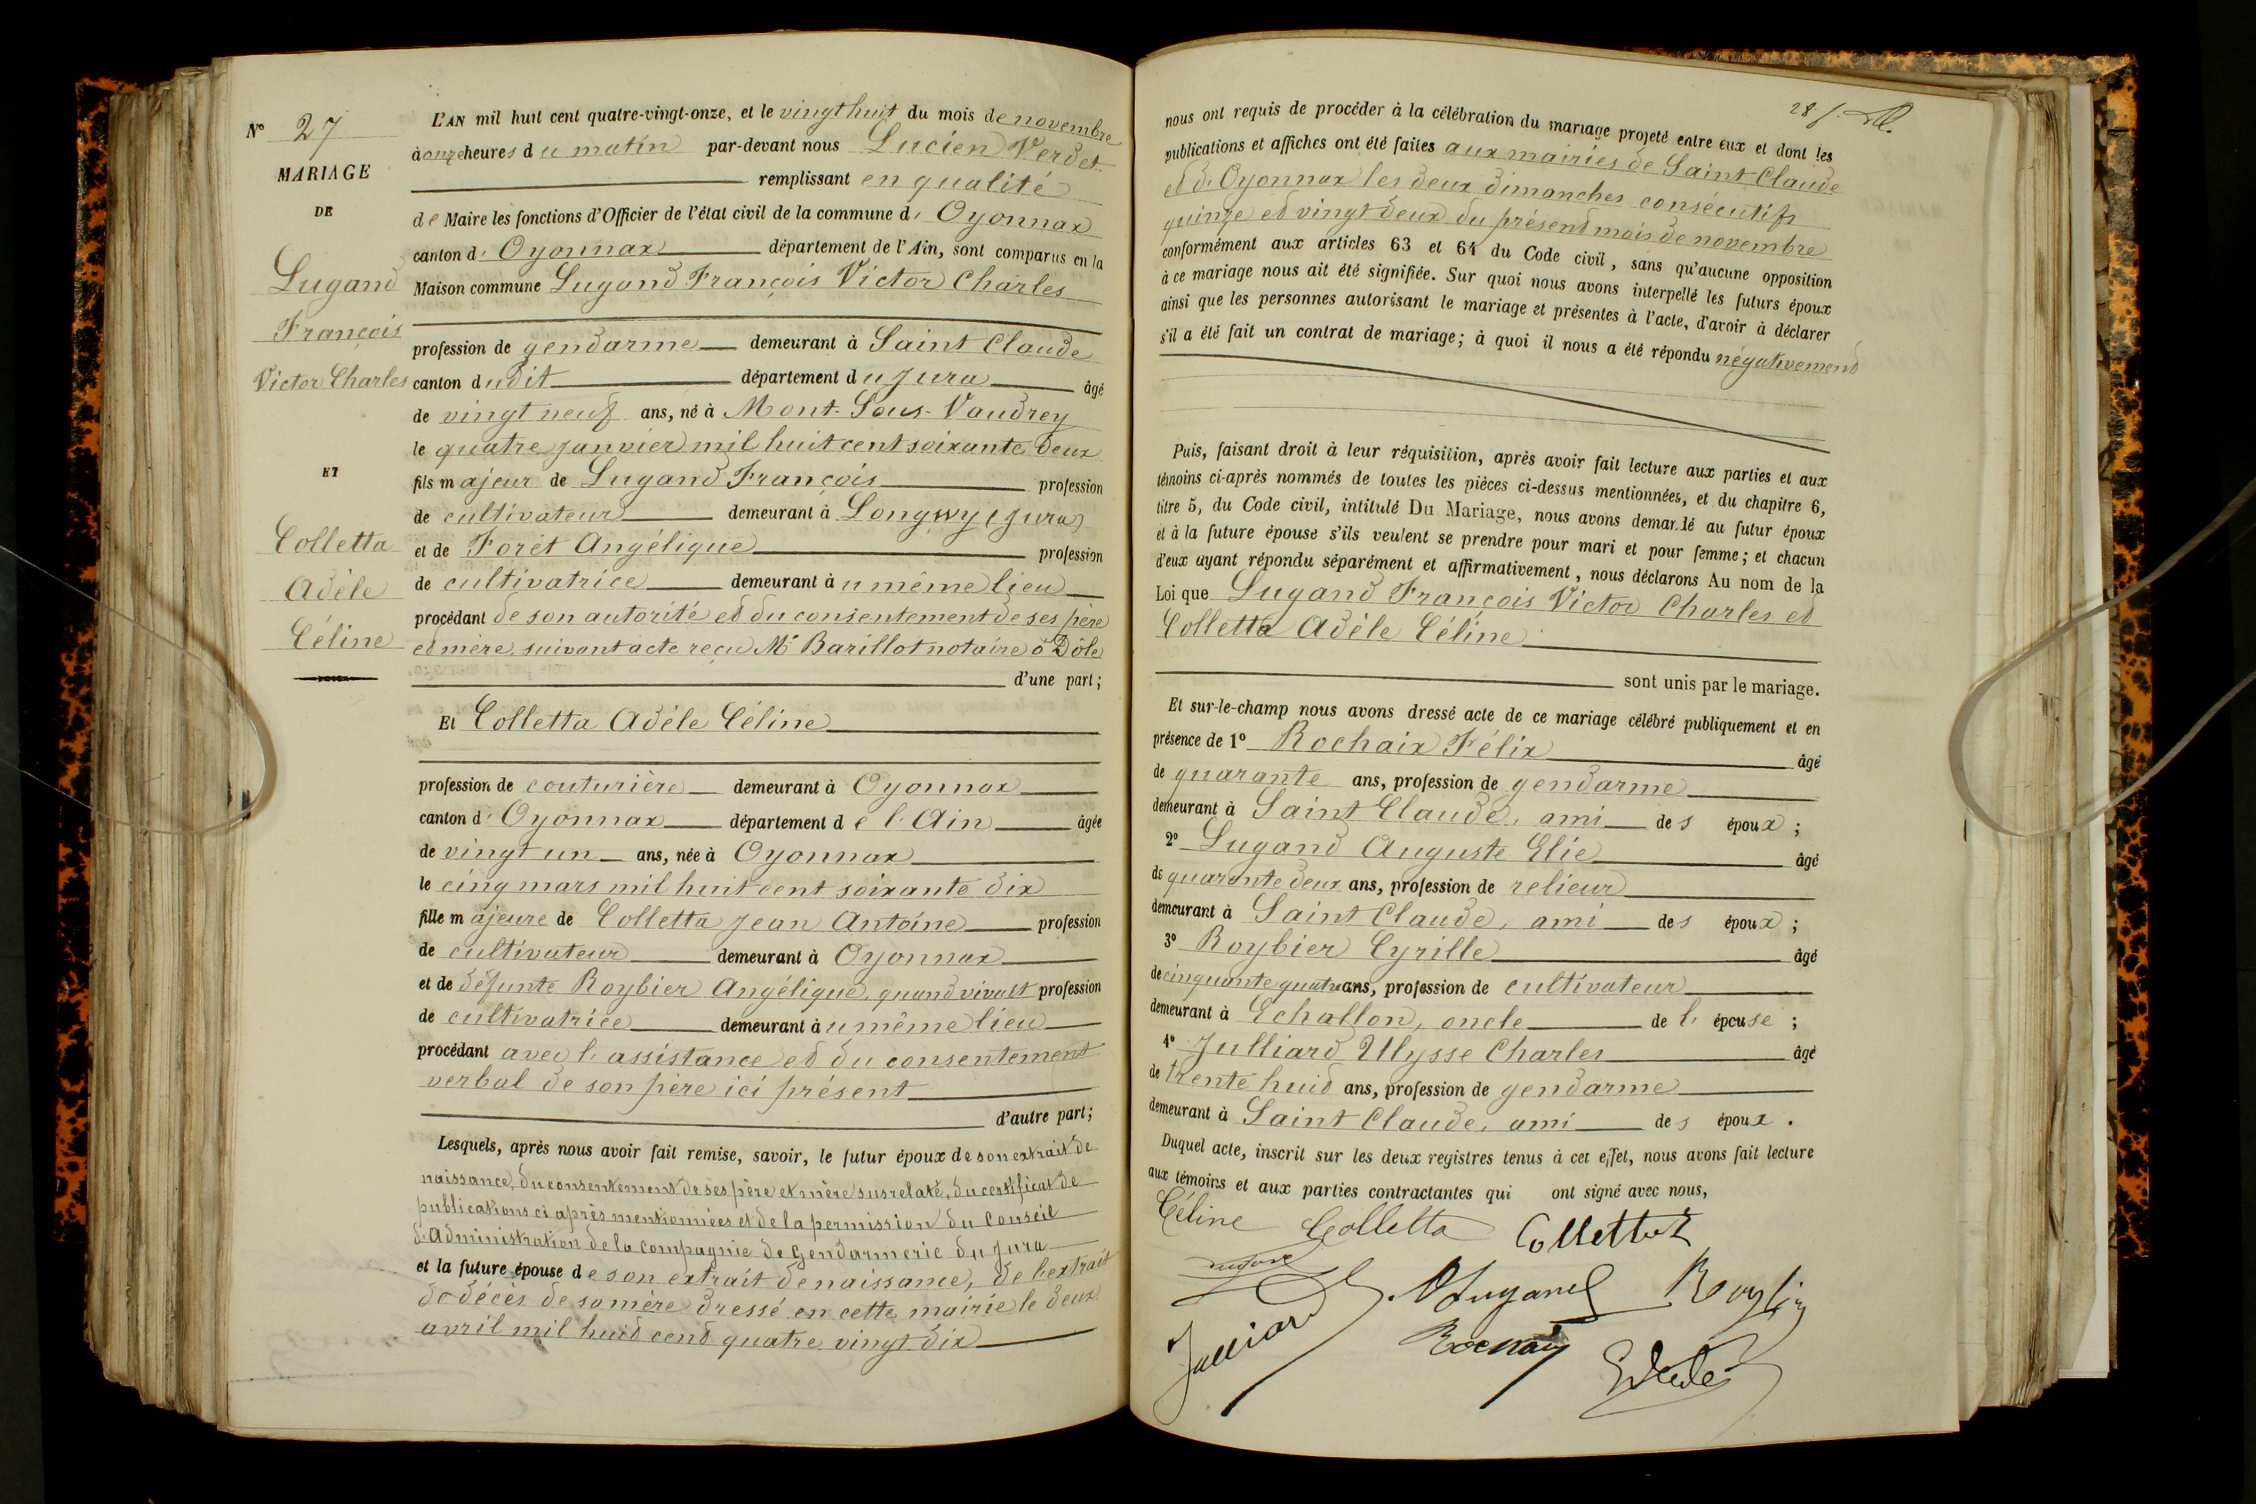 N° 27
MARIAGE
DE
Lugand
François
Victor Charles
ET
Colletta
Adèle
Céline
L'AN mil huit cent quatre-vingt-onze, et le vingt huit du mois de novembre
à onze heures du matin par-devant nous Lucien Verdet
remplissant en qualité
de Maire les fonctions d'Officier de l'état civil de la commune d' Oyonnax
canton d' Oyonnax département de l'Ain, sont comparus en la
Maison commune Lugand François Victor Charles
profession de gendarme demeurant à Saint Claude
canton dudit département du Jura âgé
de vingt neuf ans, né à Mont-Sous-Vaudrey
le quatre janvier mil huit cent soixante deux
fils majeur de Lugand François profession
de cultivateur demeurant à Longwy (Jura)
et de Forêt Angélique profession
de cultivatrice demeurant au même lieu
procédant de son autorité et du consentement de ses père
et mère suivant acte reçu Me Barillot notaire à Dôle
d'une part;
Et Colletta Adèle Céline
profession de couturière demeurant à Oyonnax
canton d' Oyonnax département de l'Ain âgée
de vingt un ans, née à Oyonnax
le cinq mars mil huit cent soixante dix
fille majeure de Colletta Jean Antoine profession
de cultivateur demeurant à Oyonnax
et de défunte Roybier Angélique, quand vivait profession
de cultivatrice demeurant au même lieu
procédant avec l'assistance et du consentement
verbal de son père ici présent
d'autre part;
Lesquels, après nous avoir fait remise, savoir, le futur époux de son extrait de
naissance, du consentement de ses père et mère susrelaté, du certificat de
publications ci après mentionnées et de la permission du Conseil
d'Administration de la Compagnie de Gendarmerie du Jura
et la future épouse de son extrait de naissance, de l'extrait
de décès de sa mère dressé en cette mairie le deux
avril mil huit cent quatre vingt dix
28 f.
nous ont requis de procéder à la célébration du mariage projeté entre eux et dont les
publications et affiches ont été faites aux mairies de Saint Claude
et d'Oyonnax les deux dimanches consécutifs
quinze et vingt deux du présent mois de novembre
conformément aux articles 63 et 64 du Code civil, sans qu'aucune opposition
à ce mariage nous ait été signifiée. Sur quoi nous avons interpellé les futurs époux
ainsi que les personnes autorisant le mariage et présentes à l'acte, d'avoir à déclarer
s'il a été fait un contrat de mariage; à quoi il nous a été répondu négativement
Puis, faisant droit à leur réquisition, après avoir fait lecture aux parties et aux
témoins ci-après nommés de toutes les pièces ci-dessus mentionnées, et du chapitre 6,
titre 5, du Code civil, intitulé Du Mariage, nous avons demandé au futur époux
et à la future épouse s'ils veulent se prendre pour mari et pour femme; et chacun
d'eux ayant répondu séparément et affirmativement, nous déclarons Au nom de la
Loi que Lugand François Victor Charles et
Colletta Adèle Céline
sont unis par le mariage.
Et sur-le-champ nous avons dressé acte de ce mariage célébré publiquement et en
présence de 1° Rochaix Félix âgé
de quarante ans, profession de gendarme
demeurant à Saint Claude, ami des époux;
2° Lugand Auguste Elie âgé
de quarante deux ans, profession de relieur
demeurant à Saint Claude, ami des époux;
3° Roybier Cyrille âgé
de cinquante quatre ans, profession de cultivateur
demeurant à Echallon, oncle de l'épouse;
4° Julliard Ulysse Charles âgé
de trente huit ans, profession de gendarme
demeurant à Saint Claude, ami des époux.
Duquel acte, inscrit sur les deux registres tenus à cet effet, nous avons fait lecture
aux témoins et aux parties contractantes qui ont signé avec nous,
Céline Colletta Collettaz
Lugand Roybier
Julliard Rochaix